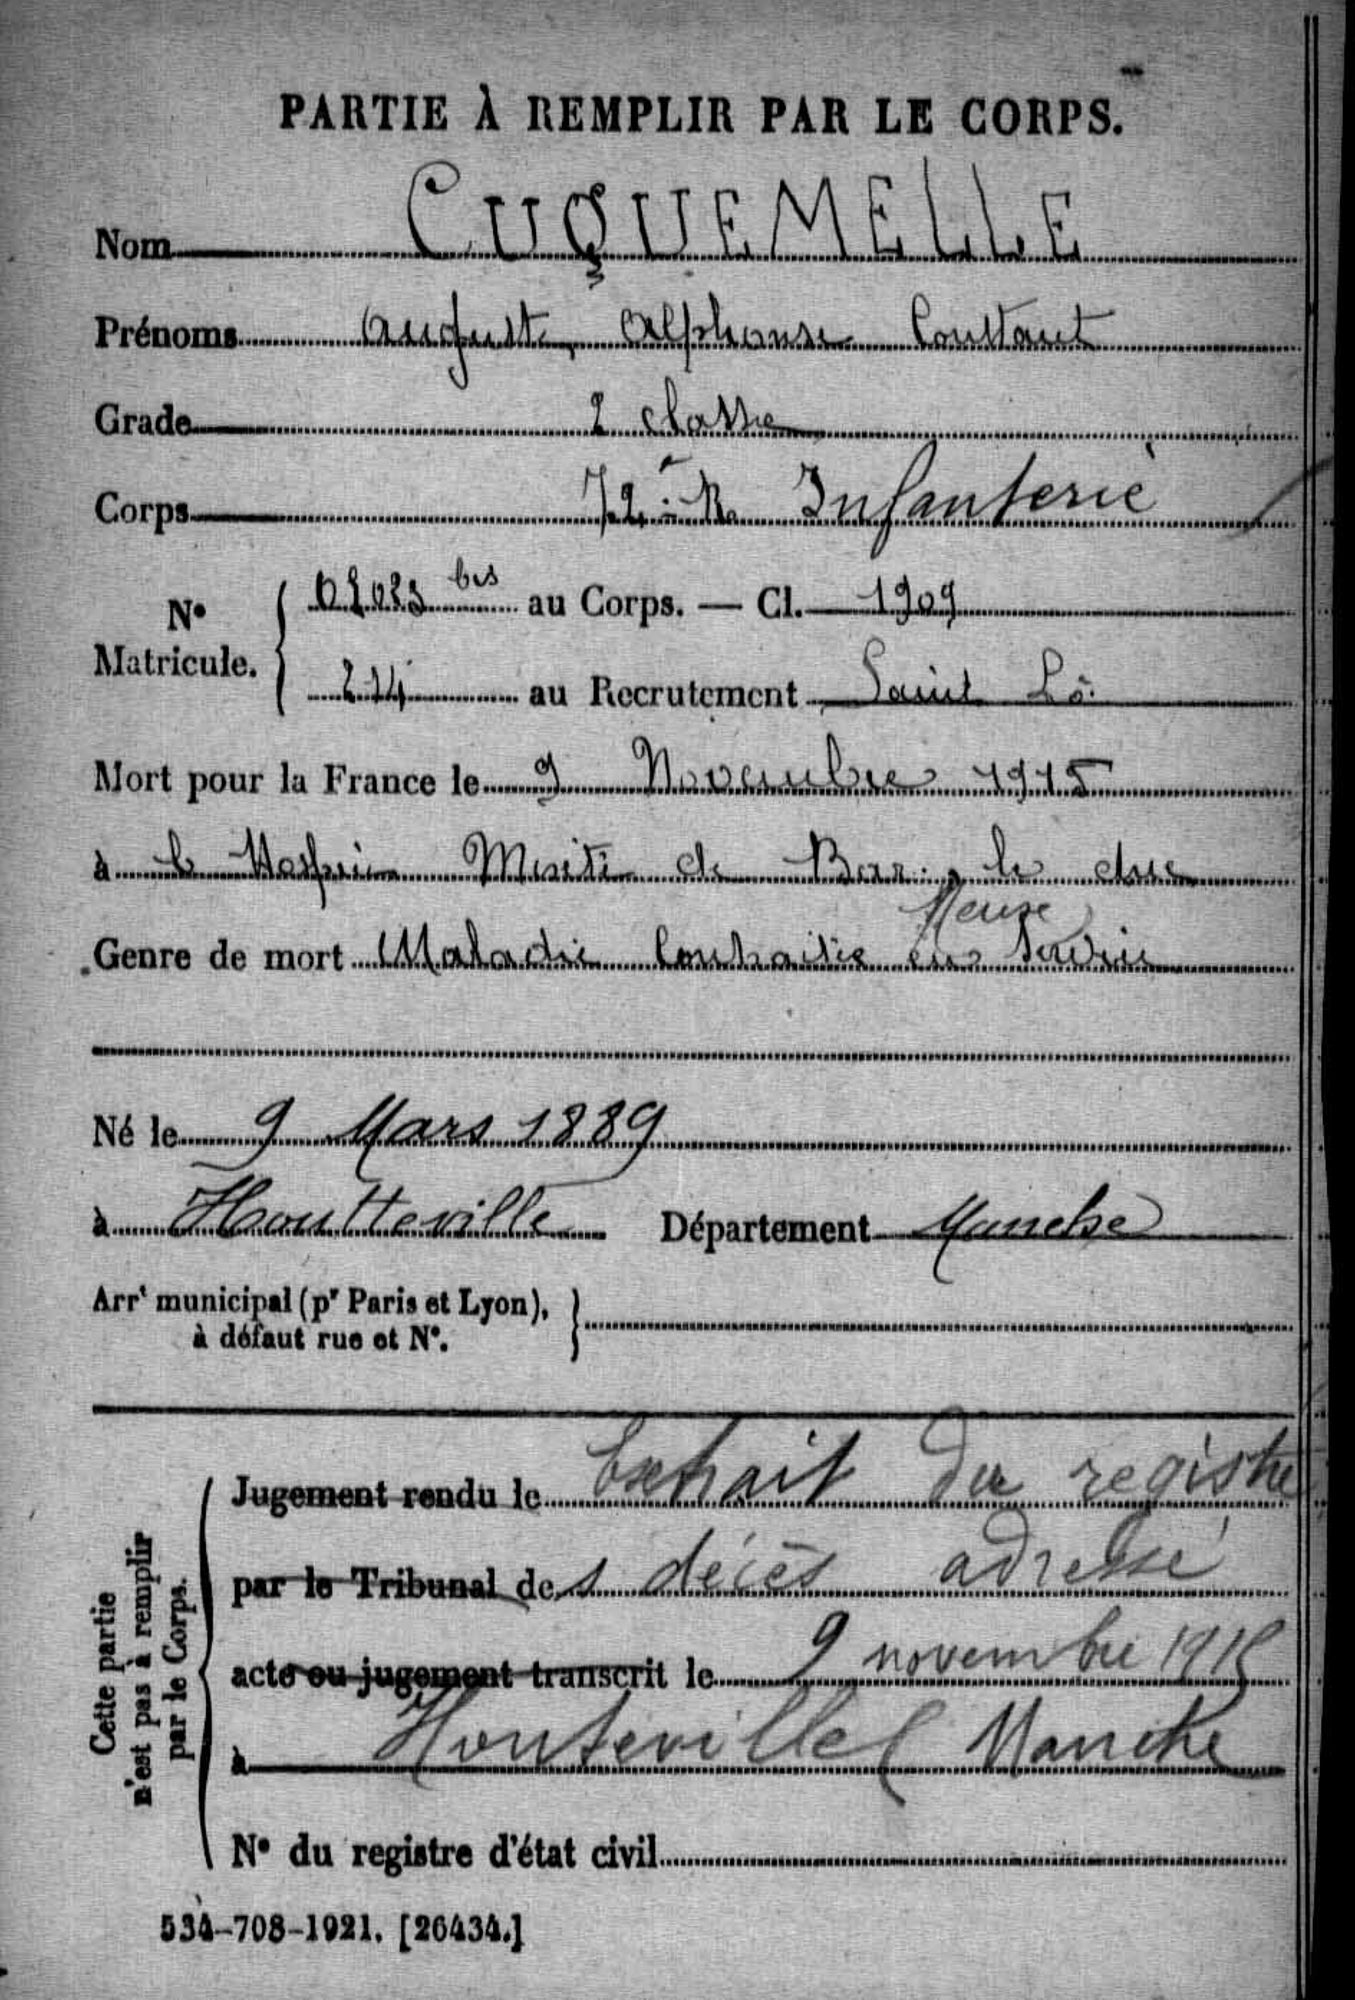 PARTIE À REMPLIR PAR LE CORPS.
Nom CUQUEMELLE
Prénoms Auguste, Alphonse Constant
Grade 2 classe
Corps 72e R. Infanterie
No Matricule. { 02023 bis au Corps. — Cl. 1909
214 au Recrutement Saint Lô
Mort pour la France le 9 Novembre 1915
à l'Hospice Mixte de Bar-le duc
Meuse
Genre de mort Maladie Contractée en Service
Né le 9 Mars 1889
à Houtteville Département Manche
Arrt municipal (pr Paris et Lyon),
à défaut rue et No. }
Cette partie
n'est pas à remplir
par le Corps.
Jugement rendu le Extrait du registre
par le Tribunal de s décès adressé
acte ou jugement transcrit le 9 novembre 1915
à Houteville (Manche
No du registre d'état civil
534-708-1921. [26434.]